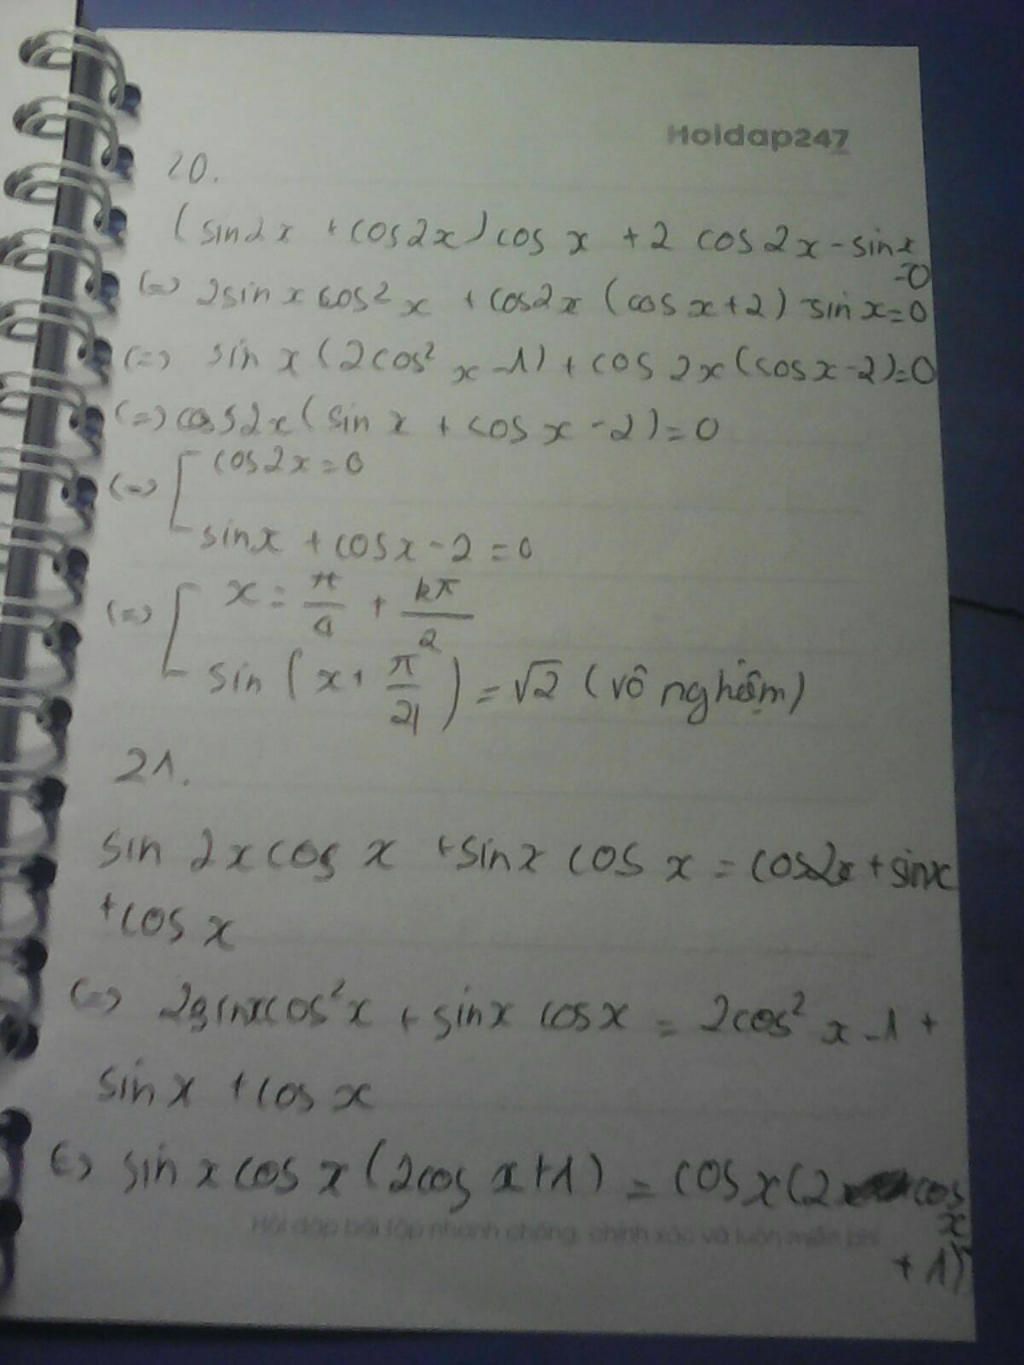 Hoidap247
20.
(sin2x + cos2x) cos x + 2 cos 2x - sinx
=0
(=) 2sin x cos² x + cos2x (cos x+2) - sin x=0
(=) sin x (2cos² x -1) + cos 2x (cos x-2)=0
(=) cos2x (sin x + cos x - 2) = 0
(=) [ cos2x = 0
sinx + cosx - 2 = 0
(=) [ x = π/4 + kπ/2
sin (x + π/4) = √2 (vô nghiệm)
21.
sin 2x cos x + sinx cos x = cos2x + sinx
+ cos x
(=) 2sinxcos²x + sinx cosx = 2cos² x -1 +
sin x + cos x
(=) sin x cos x (2cos x+1) = cos x (2 cos
x
+ 1)
Hỏi đáp bài tập nhanh chóng, chính xác và luôn miễn phí